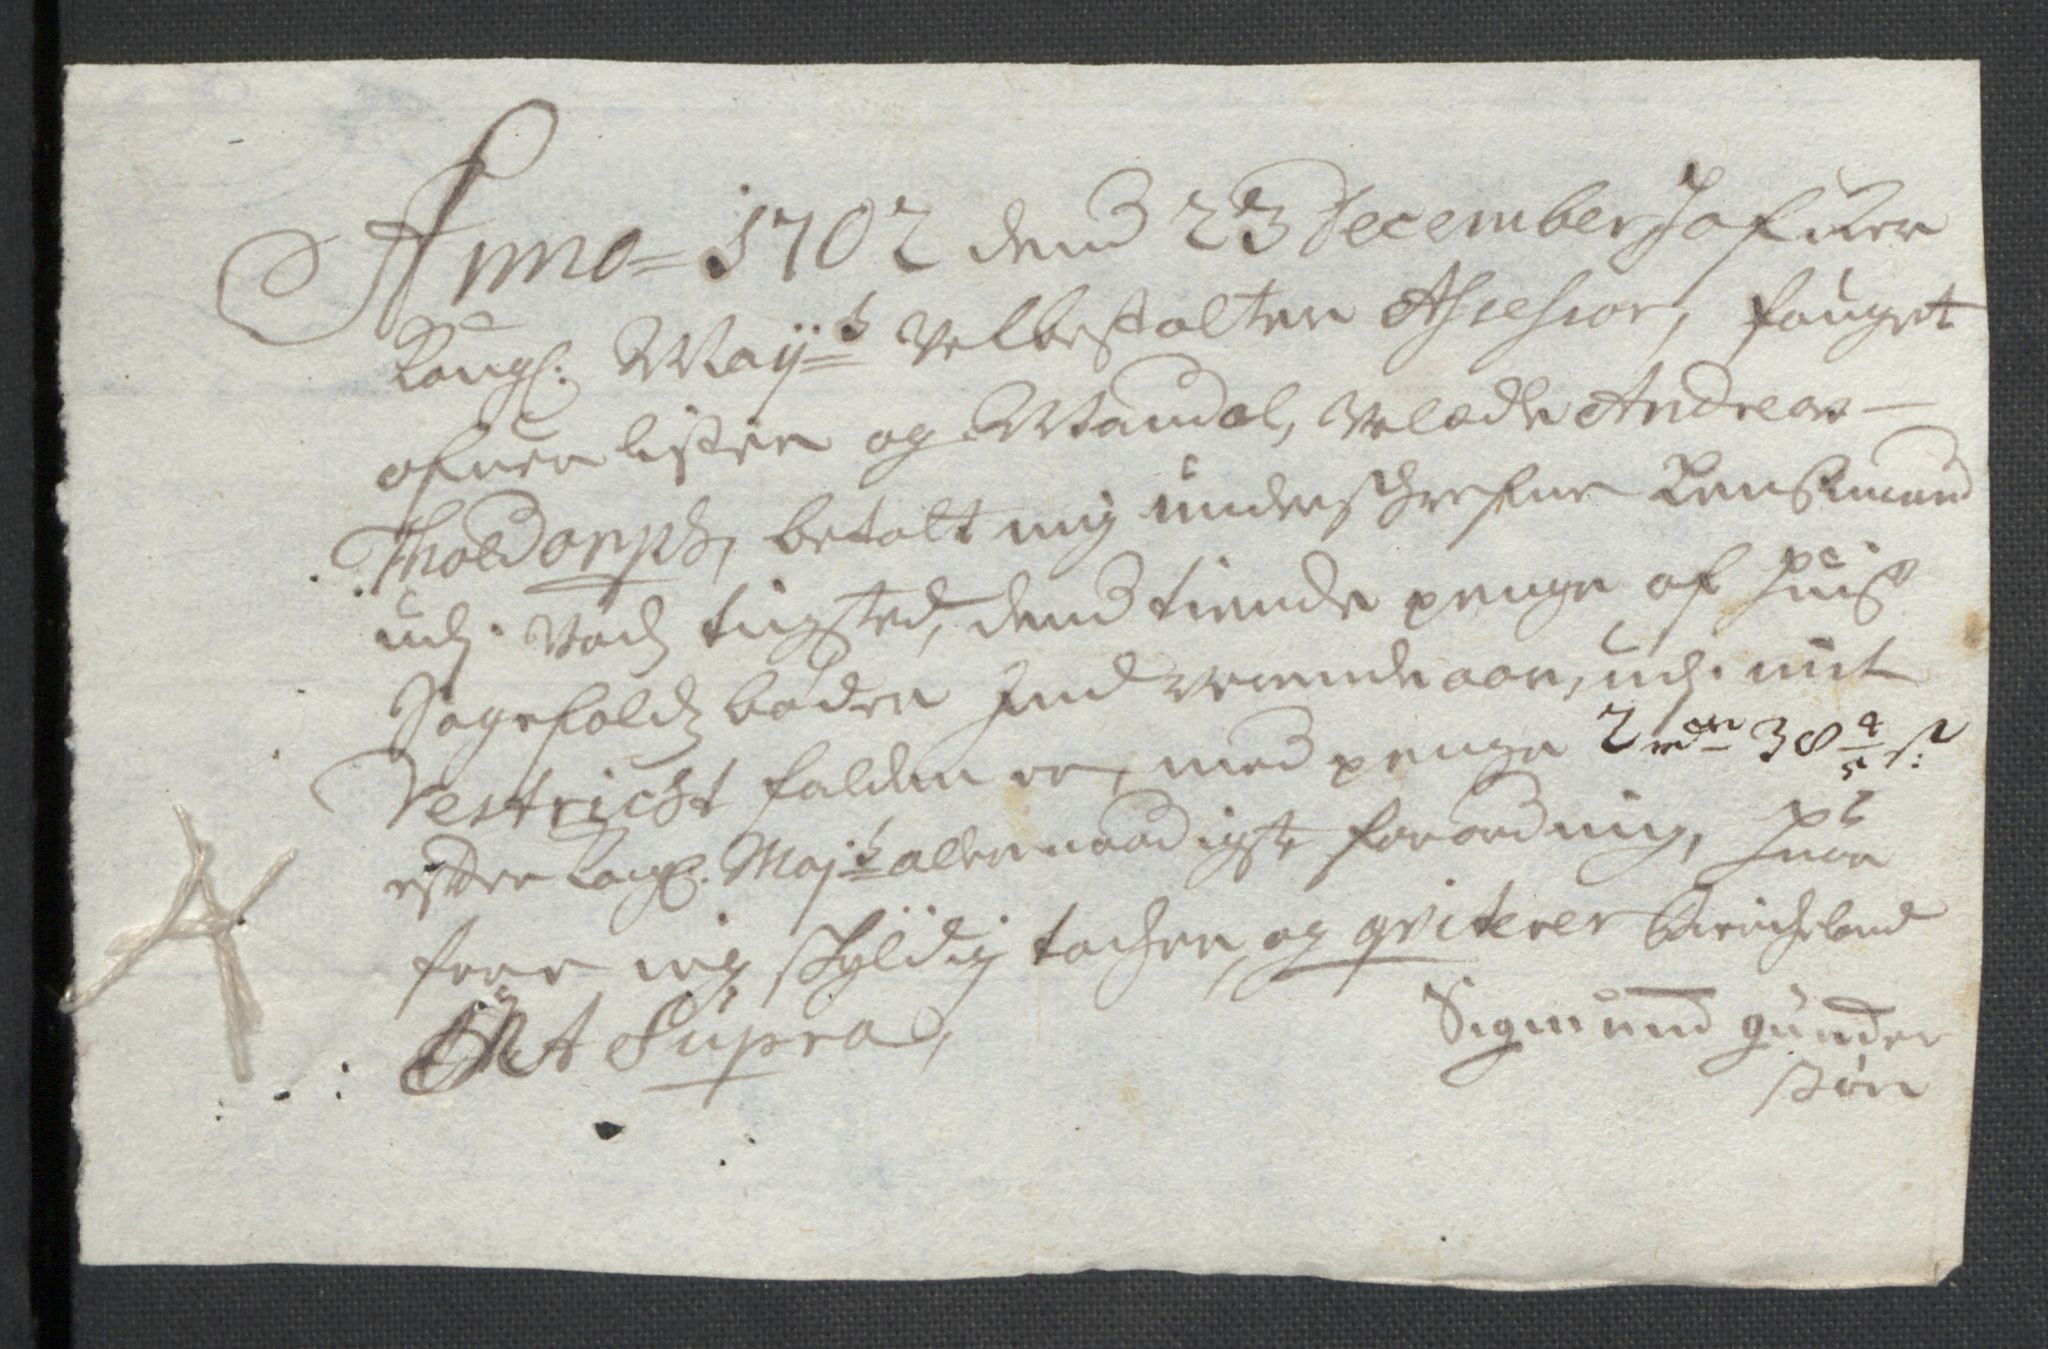 Anno = 1702 dend 23 December Hafuer
Kongl: Mayts Velbestalter Assessor, fouget
ofuer Lister og Mandal, Velædle Andreas
Tholdorph, betalt mig underschrefne Lensmand
udj Vadz tingsted, dend tiende penge af huis
Sagefaldz bøder Ind verrende aar, udj mit
Destricht falden er, med penge 2 rdr 38 4/5 s:
efter Kongl: Majts allernaadigste forordning, huor
fore ieg skyldig tacher og qviterer
Ut Supra,
Sigmund gunder
søn